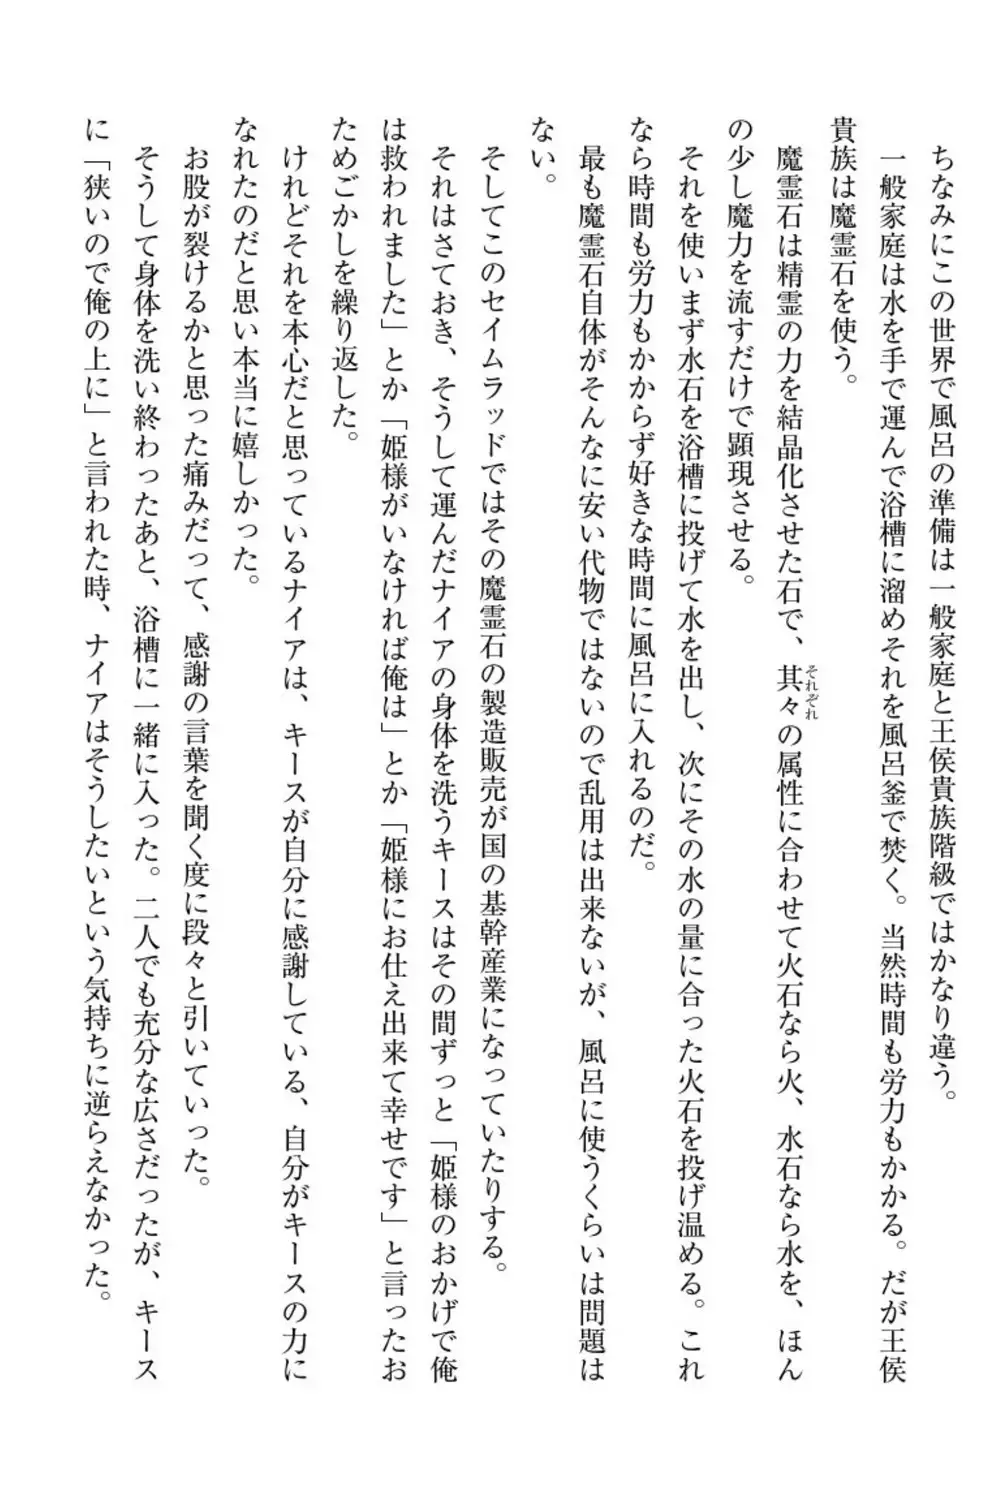 ちなみにこの世界で風呂の準備は一般家庭と王侯貴族階級ではかなり違う。
一般家庭は水を手で運んで浴槽に溜めそれを風呂釜で焚く。当然時間も労力もかかる。だが王侯
貴族は魔霊石を使う。
魔霊石は精霊の力を結晶化させた石で、其々それぞれの属性に合わせて火石なら火、水石なら水を、ほん
の少し魔力を流すだけで顕現させる。
それを使いまず水石を浴槽に投げて水を出し、次にその水の量に合った火石を投げ温める。これ
なら時間も労力もかからず好きな時間に風呂に入れるのだ。
最も魔霊石自体がそんなに安い代物ではないので乱用は出来ないが、風呂に使うくらいは問題は
ない。
そしてこのセイムラッドではその魔霊石の製造販売が国の基幹産業になっていたりする。
それはさておき、そうして運んだナイアの身体を洗うキースはその間ずっと「姫様のおかげで俺
は救われました」とか「姫様がいなければ俺は」とか「姫様にお仕え出来て幸せです」と言ったお
ためごかしを繰り返した。
けれどそれを本心だと思っているナイアは、キースが自分に感謝している、自分がキースの力に
なれたのだと思い本当に嬉しかった。
お股が裂けるかと思った痛みだって、感謝の言葉を聞く度に段々と引いていった。
そうして身体を洗い終わったあと、浴槽に一緒に入った。二人でも充分な広さだったが、キース
に「狭いので俺の上に」と言われた時、ナイアはそうしたいという気持ちに逆らえなかった。